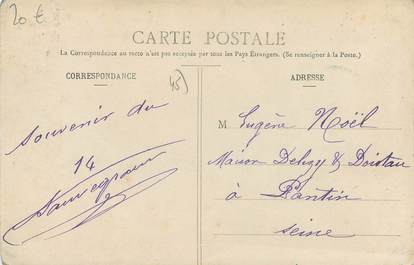 20 €
CARTE POSTALE
La Correspondance au recto n'est pas acceptée par tous les Pays Etrangers. (Se renseigner à la Poste.)
CORRESPONDANCE
45)
ADRESSE
Souvenir du
14
M Eugène Noël
Maison Delizy & Doistau
à Pantin
Seine